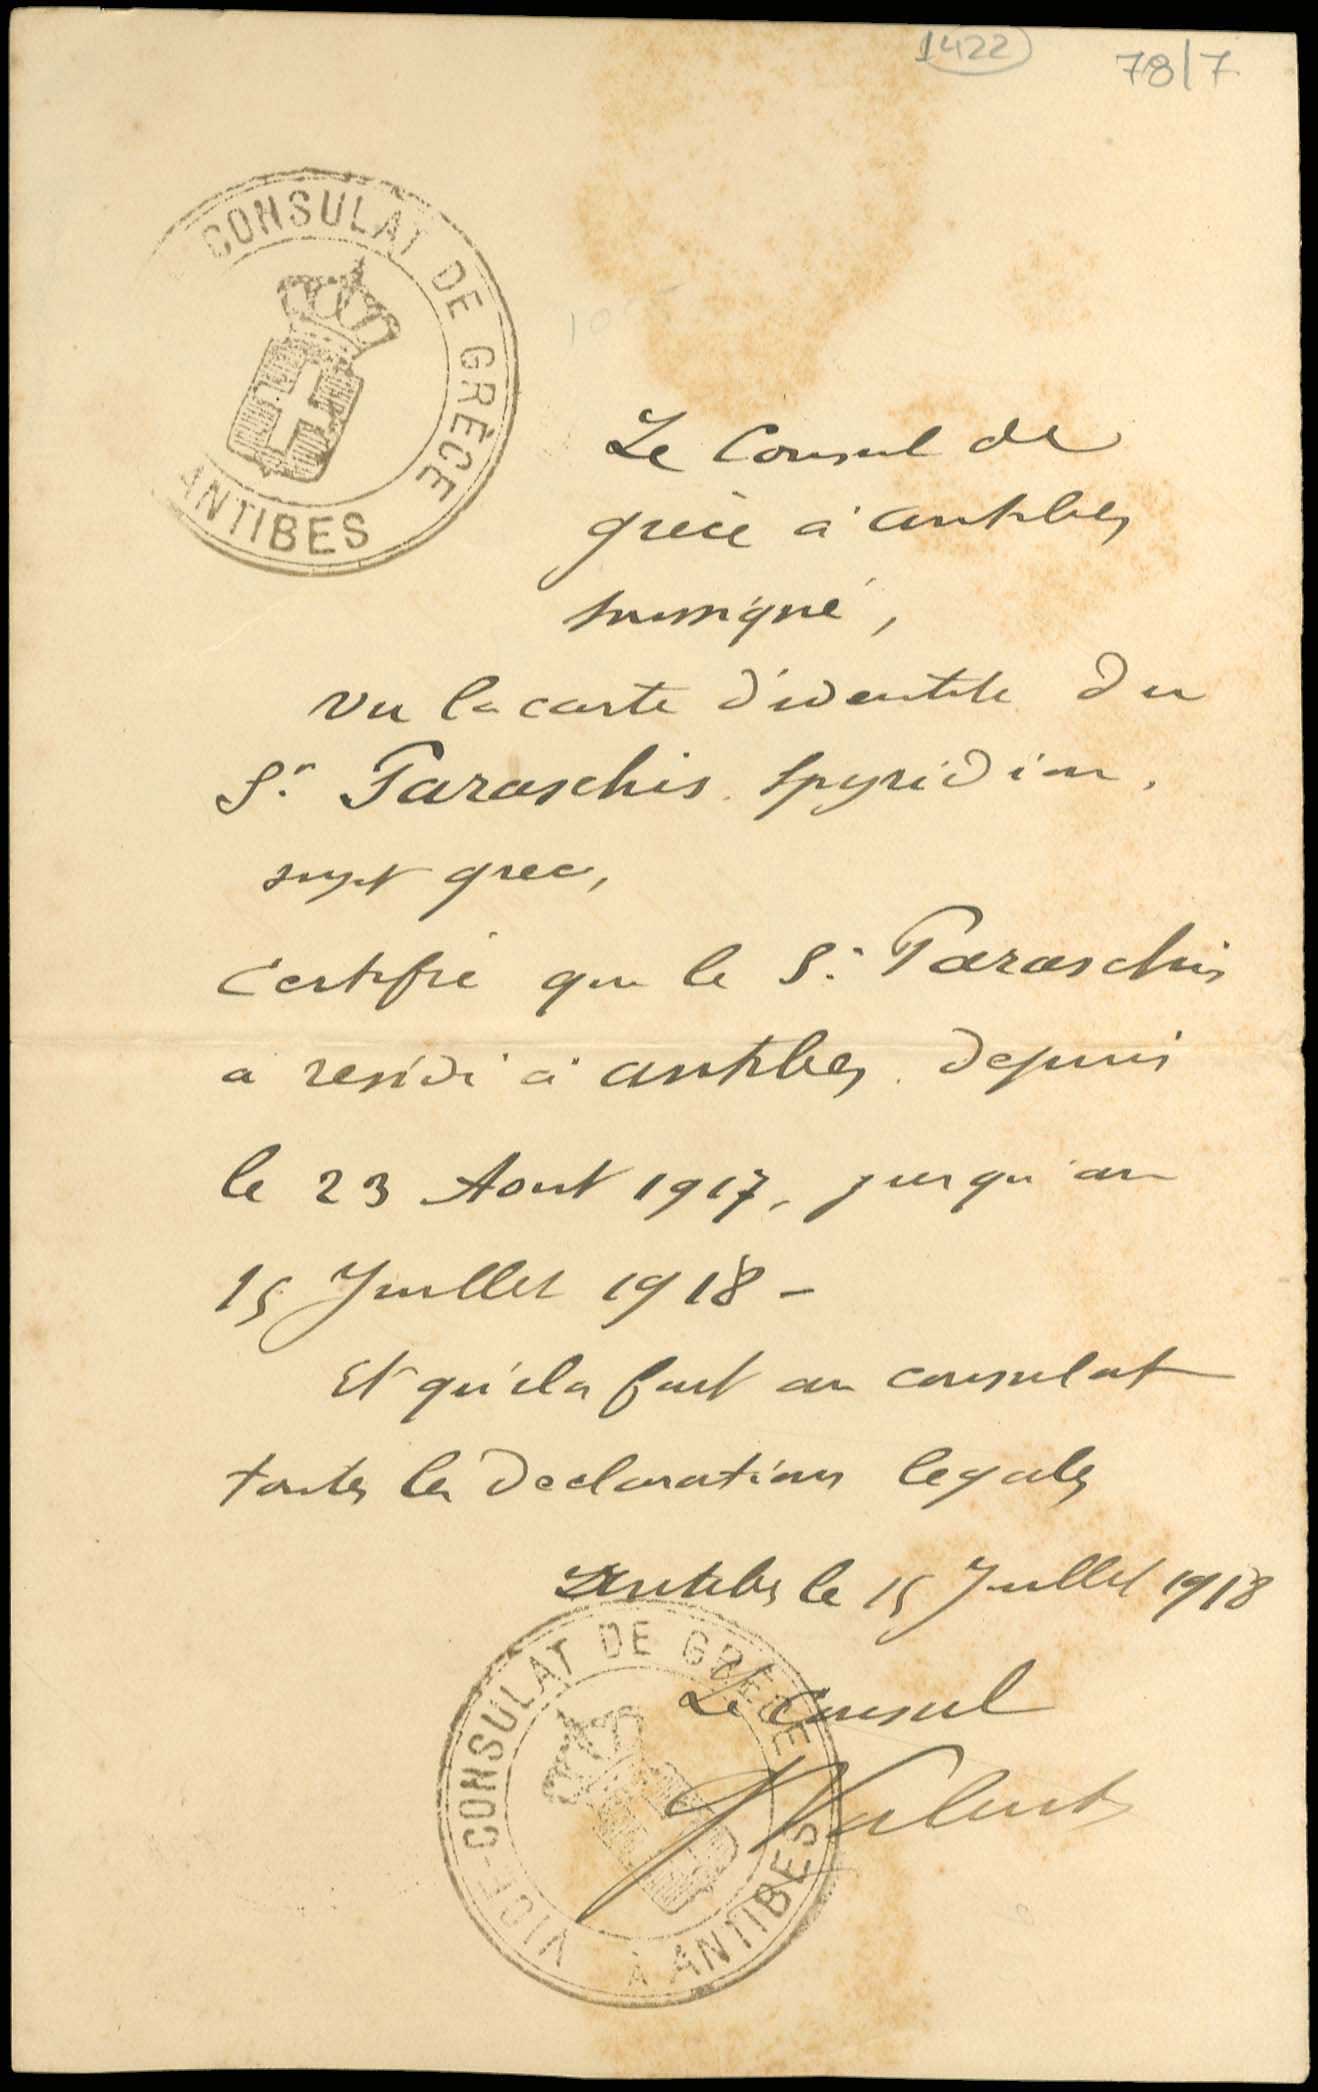 1422
78/7
CONSULAT DE GRÈCE
ANTIBES
Le Consul de
grèce à antibes
soussigné,
vu la carte d'identité du
Sr. Paraschis Spyridion,
sujet grec,
certifie que le Sr. Paraschis
a residé à antibes depuis
le 23 Aout 1917, jusqu'au
15 Juillet 1918 -
Et qu'il a fait au consulat
toutes les declarations legales
Antibes le 15 Juillet 1918
Le Consul
VICE-CONSULAT DE GRÈCE
À ANTIBES